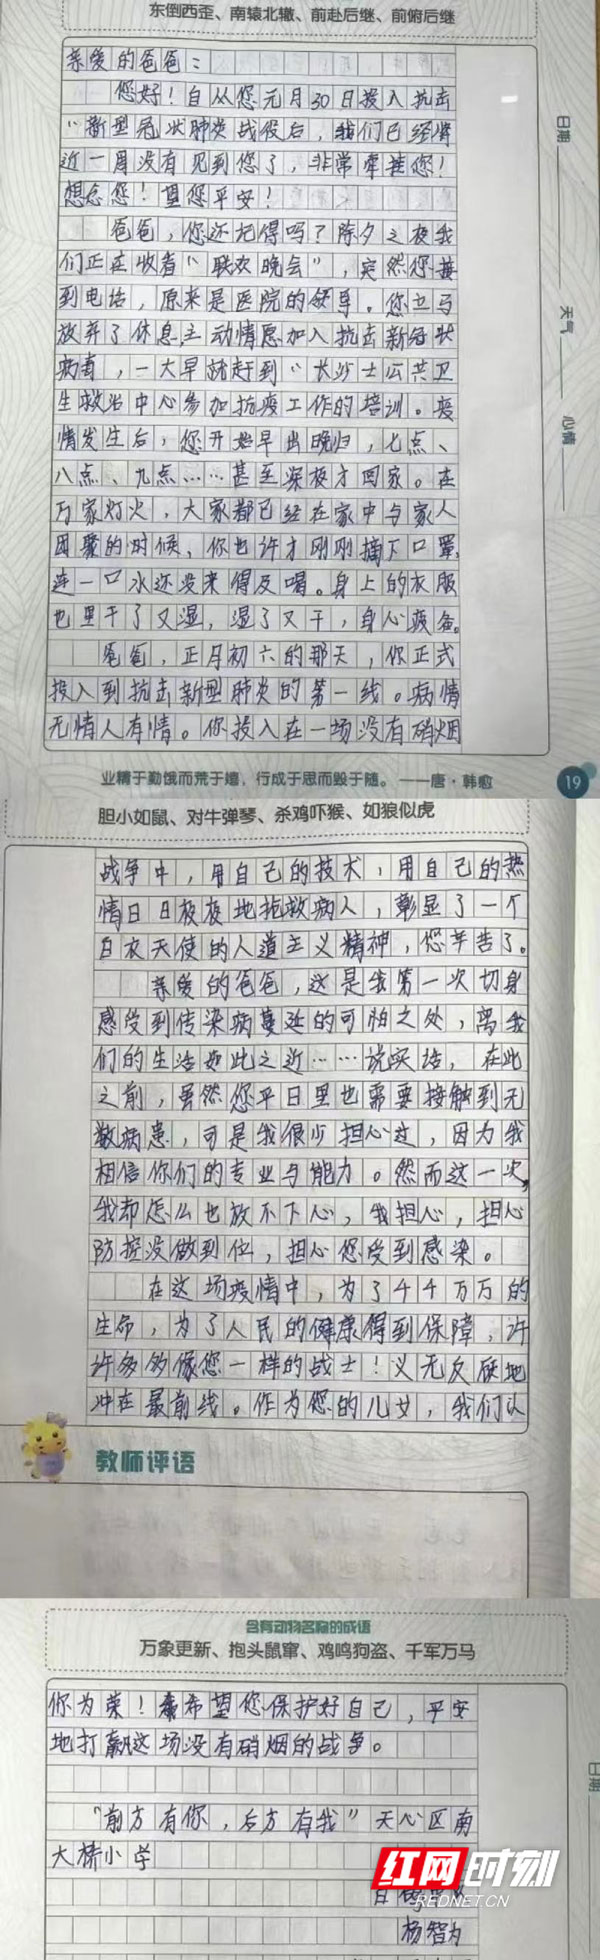 东倒西歪、南辕北辙、前赴后继、前俯后继
亲爱的爸爸：
您好！自从您元月30日投入抗击
“新型冠状肺炎战役后，我们已经将
近一周没有见到您了，非常牵挂您！
想念您！望您平安！
爸爸，您还记得吗？除夕之夜我
们正在收看“联欢晚会”，突然您接
到电话，原来是医院的领导。您立马
放弃了休息主动情愿加入抗击新冠状
病毒，一大早就赶到“长沙士公共卫
生救治中心参加抗疫工作的培训。疫
情发生后，您开始早出晚归，七点、
八点、九点……甚至深夜才回家。在
万家灯火，大家都已经在家中与家人
团聚的时候，你也许才刚刚摘下口罩，
连一口水还没来得及喝。身上的衣服
也里干了又湿，湿了又干，身心疲惫。
爸爸，正月初六的那天，你正式
投入到抗击新型肺炎的第一线。病情
无情人有情。你投入在一场没有硝烟
业精于勤饿而荒于嬉，行成于思而毁于随。——唐·韩愈
19
日期
天气
心情
胆小如鼠、对牛弹琴、杀鸡吓猴、如狼似虎
战争中，用自己的技术，用自己的热
情日日夜夜地抢救病人，彰显了一个
白衣天使的人道主义精神，您辛苦了。
亲爱的爸爸，这是我第一次切身
感受到传染病蔓延的可怕之处，离我
们的生活如此之近……说实话，在此
之前，虽然您平日里也需要接触到无
数病患，可是我很少担心过，因为我
相信你们的专业与能力。然而这一次，
我却怎么也放不下心，我担心，担心
防控没做到位，担心您受到感染。
在这场疫情中，为了44万万的
生命，为了人民的健康得到保障，许
许多多像您一样的战士！义无反顾地
冲在最前线。作为您的儿女，我们以
教师评语
含有动物名称的成语
万象更新、抱头鼠窜、鸡鸣狗盗、千军万马
你为荣！希望您保护好自己，平安
地打赢这场没有硝烟的战争。
“前方有你，后方有我”天心区南
大桥小学
杨智为
日期
红网时刻
REDNET.CN